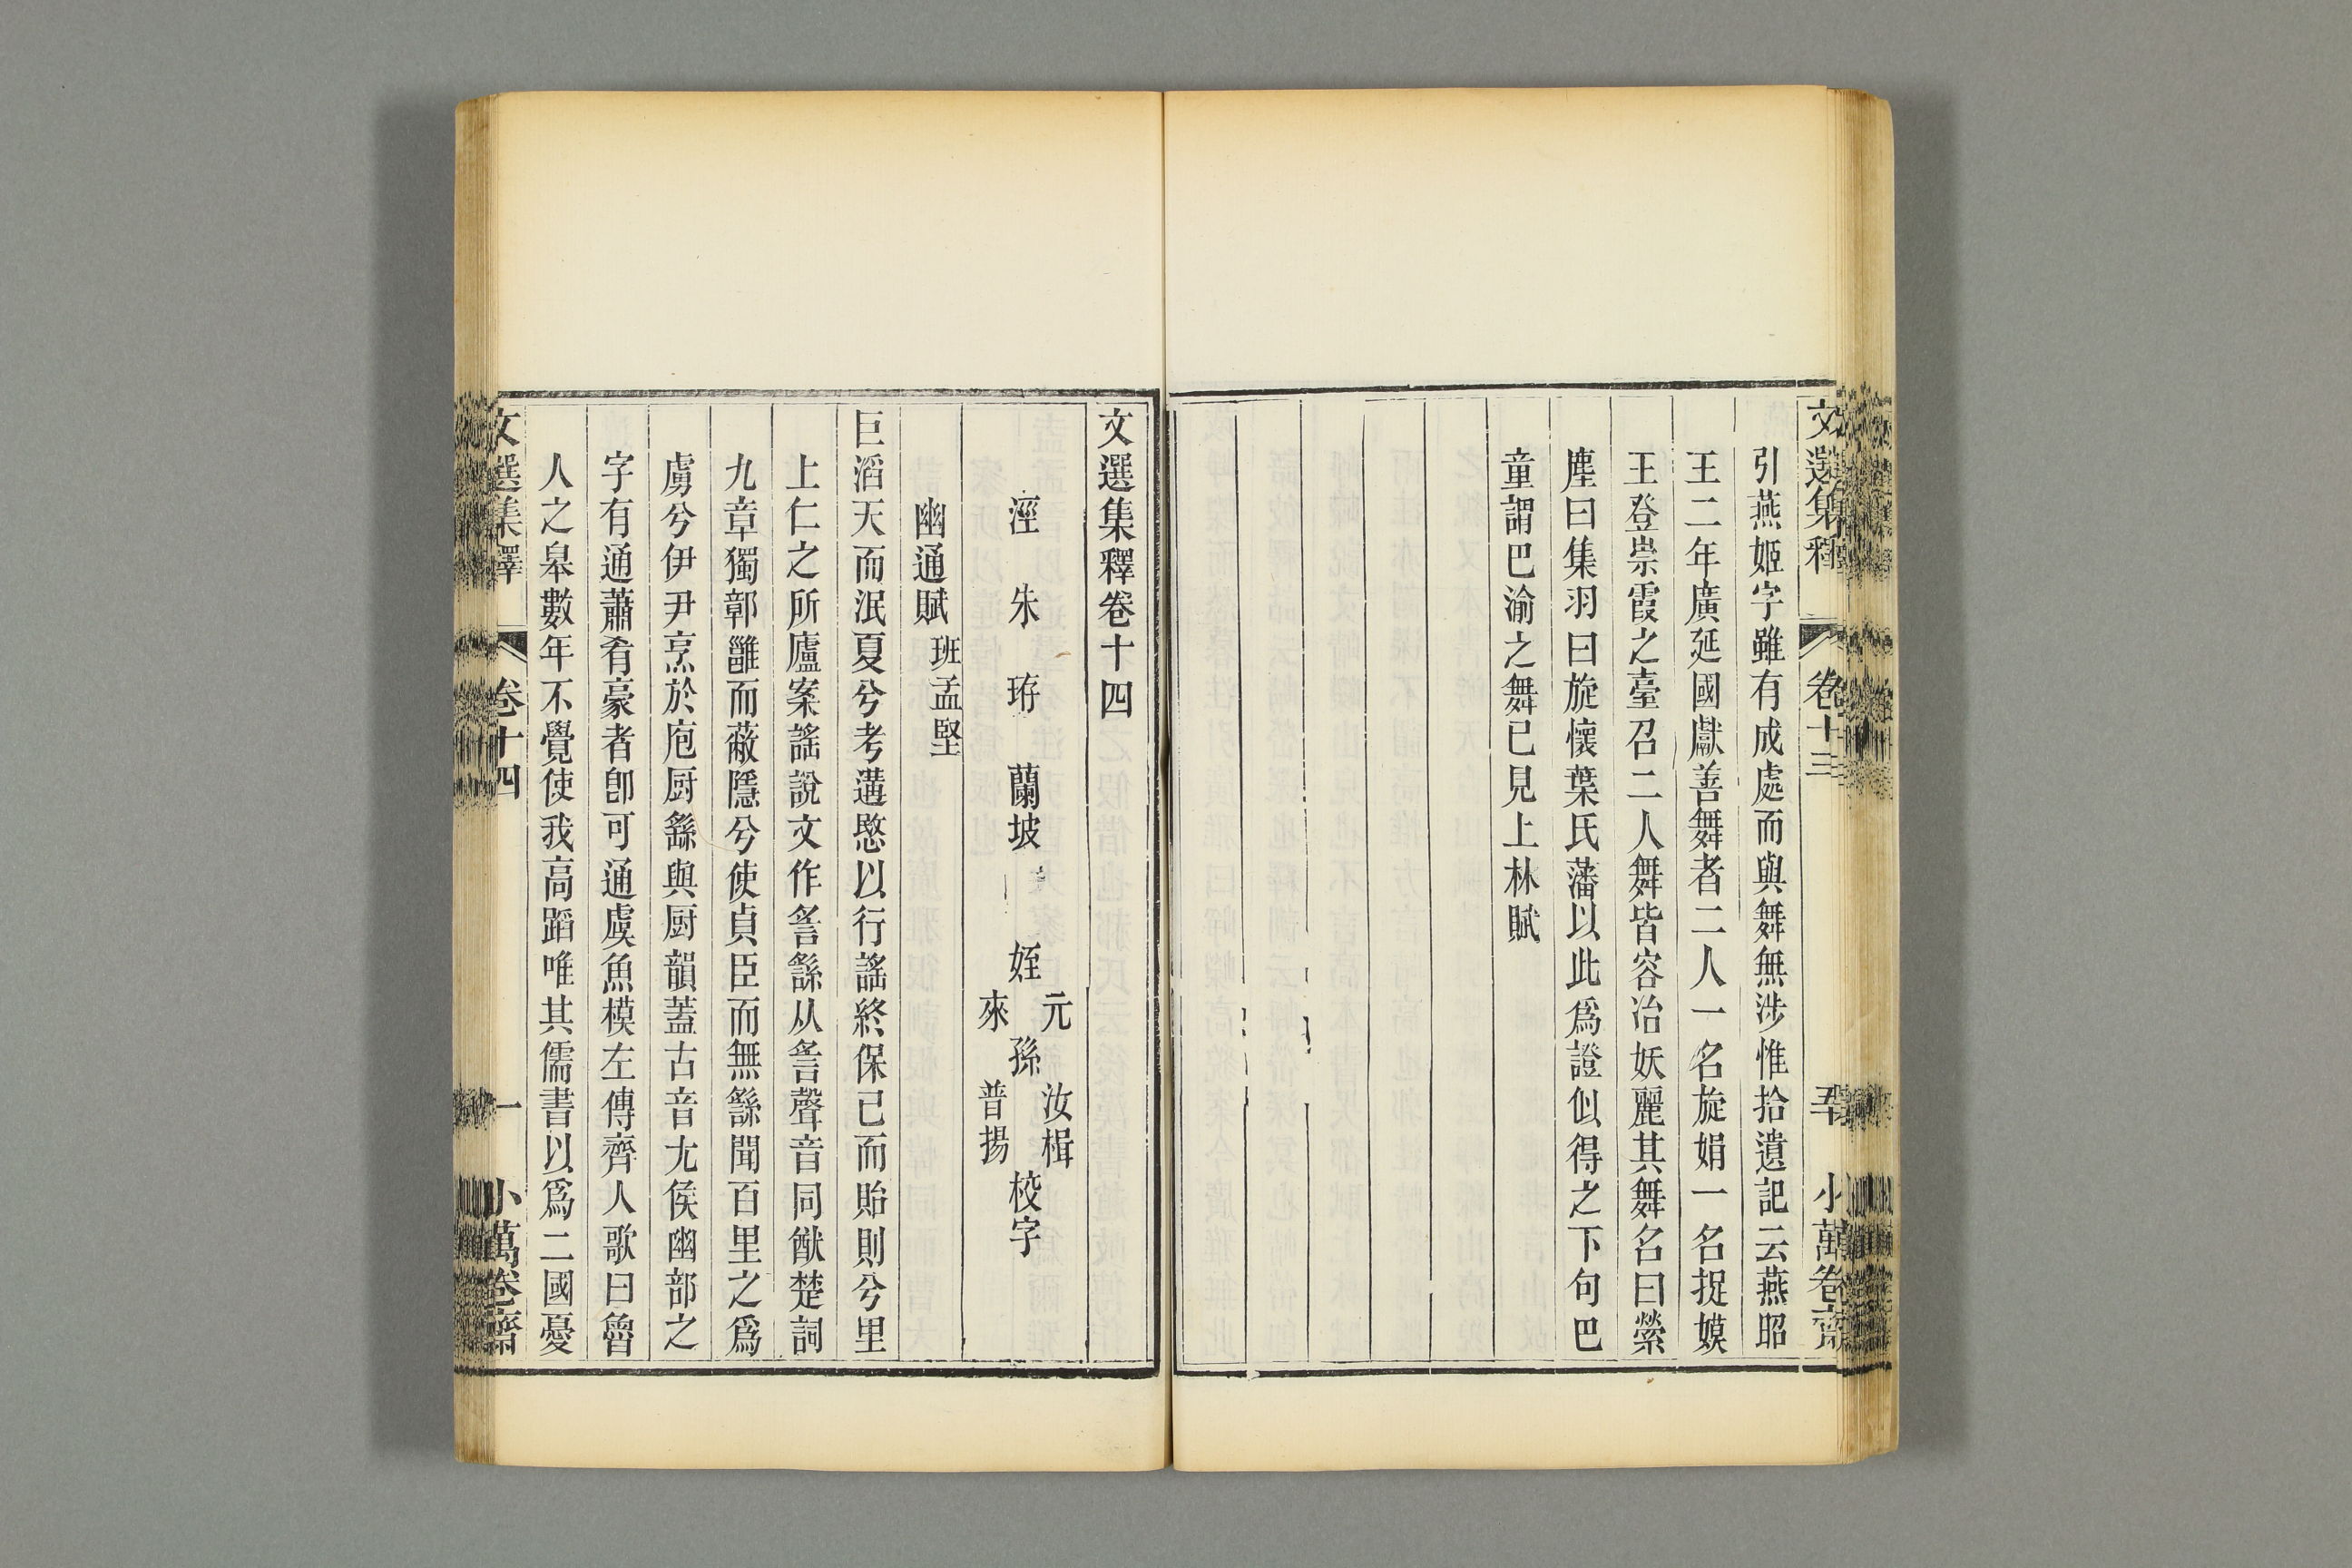 文選集釋 卷十三 小萬卷齋
引燕姬字雖有成處而與舞無涉惟拾遺記云燕昭
王二年廣延國獻善舞者二人一名旋娟一名捉嫫
王登崇霞之臺召二人舞皆容冶妖麗其舞名曰縈
塵曰集羽曰旋懷葉氏藩以此爲證似得之下句巴
童謂巴渝之舞已見上林賦
文選集釋卷十四
涇 朱 珔 蘭坡 姪 元 來 孫 汝楫 普揚 校字
幽通賦 班孟堅
巨滔天而泯夏兮考遘愍以行謠終保已而貽則兮里
上仁之所廬案謠說文作䚻繇从䚻聲音同猷楚詞
九章獨鄣雝而蔽隱兮使貞臣而無繇聞百里之爲
虜兮伊尹烹於庖厨繇與厨韻蓋古音尤侯幽部之
字有通蕭肴豪者卽可通虞魚模左傳齊人歌曰魯
人之皋數年不覺使我高蹈唯其儒書以爲二國憂
文選集釋 卷十四 一 小萬卷齋